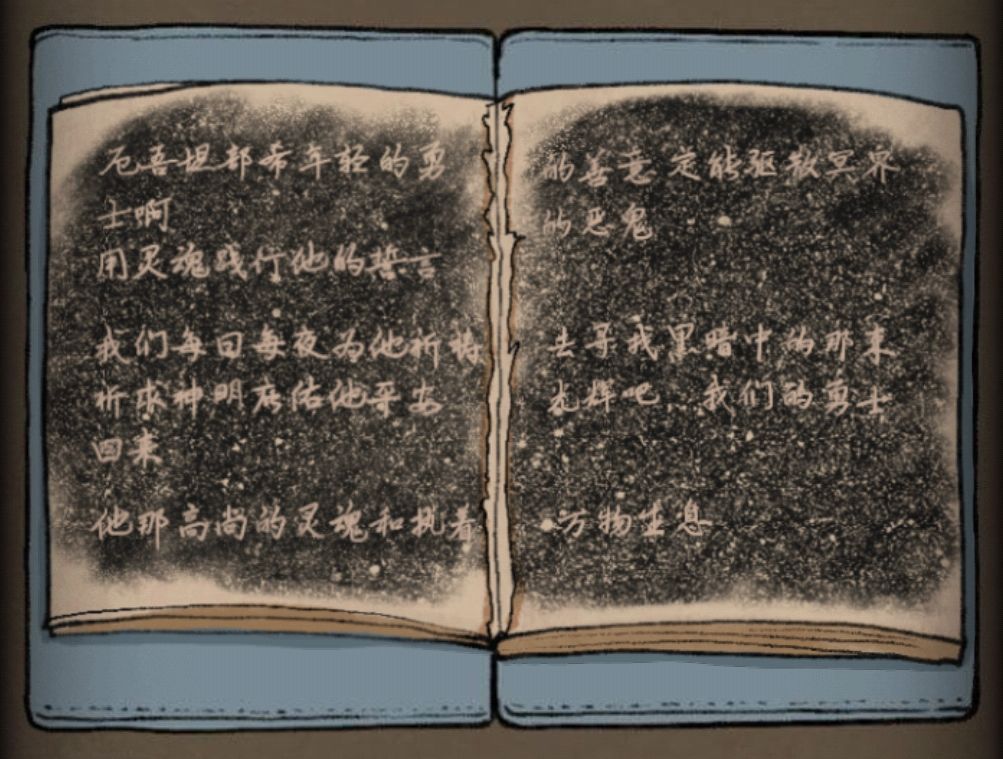 厄喜坦都希年轻的勇
士啊
用灵魂践行他的誓言
我们每日每夜为他祈祷
祈求神明庇佑他平安
回来
他那高尚的灵魂和执着
的善意定能驱散冥界
的恶鬼
去寻找黑暗中的那束
光辉吧...我们的勇士
万物生息